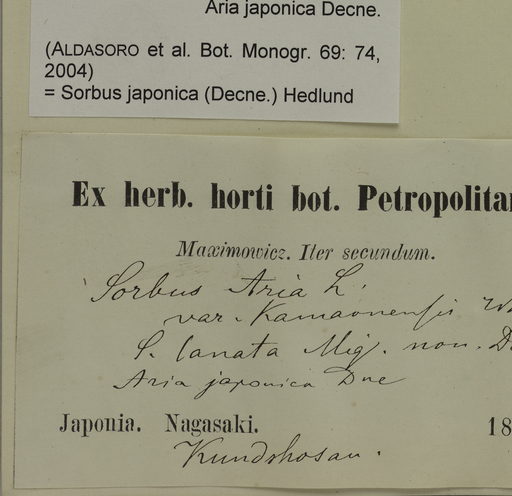 Aria japonica Decne.
(ALDASORO et al. Bot. Monogr. 69: 74,
2004)
= Sorbus japonica (Decne.) Hedlund
Ex herb. horti bot. Petropolita
Maximowicz. Iter secundum.
Sorbus Aria L.
var. Kamaonensis
S. lanata Miq. non. D
Aria japonica Dne
Japonia. Nagasaki. 18
Kundshosan.